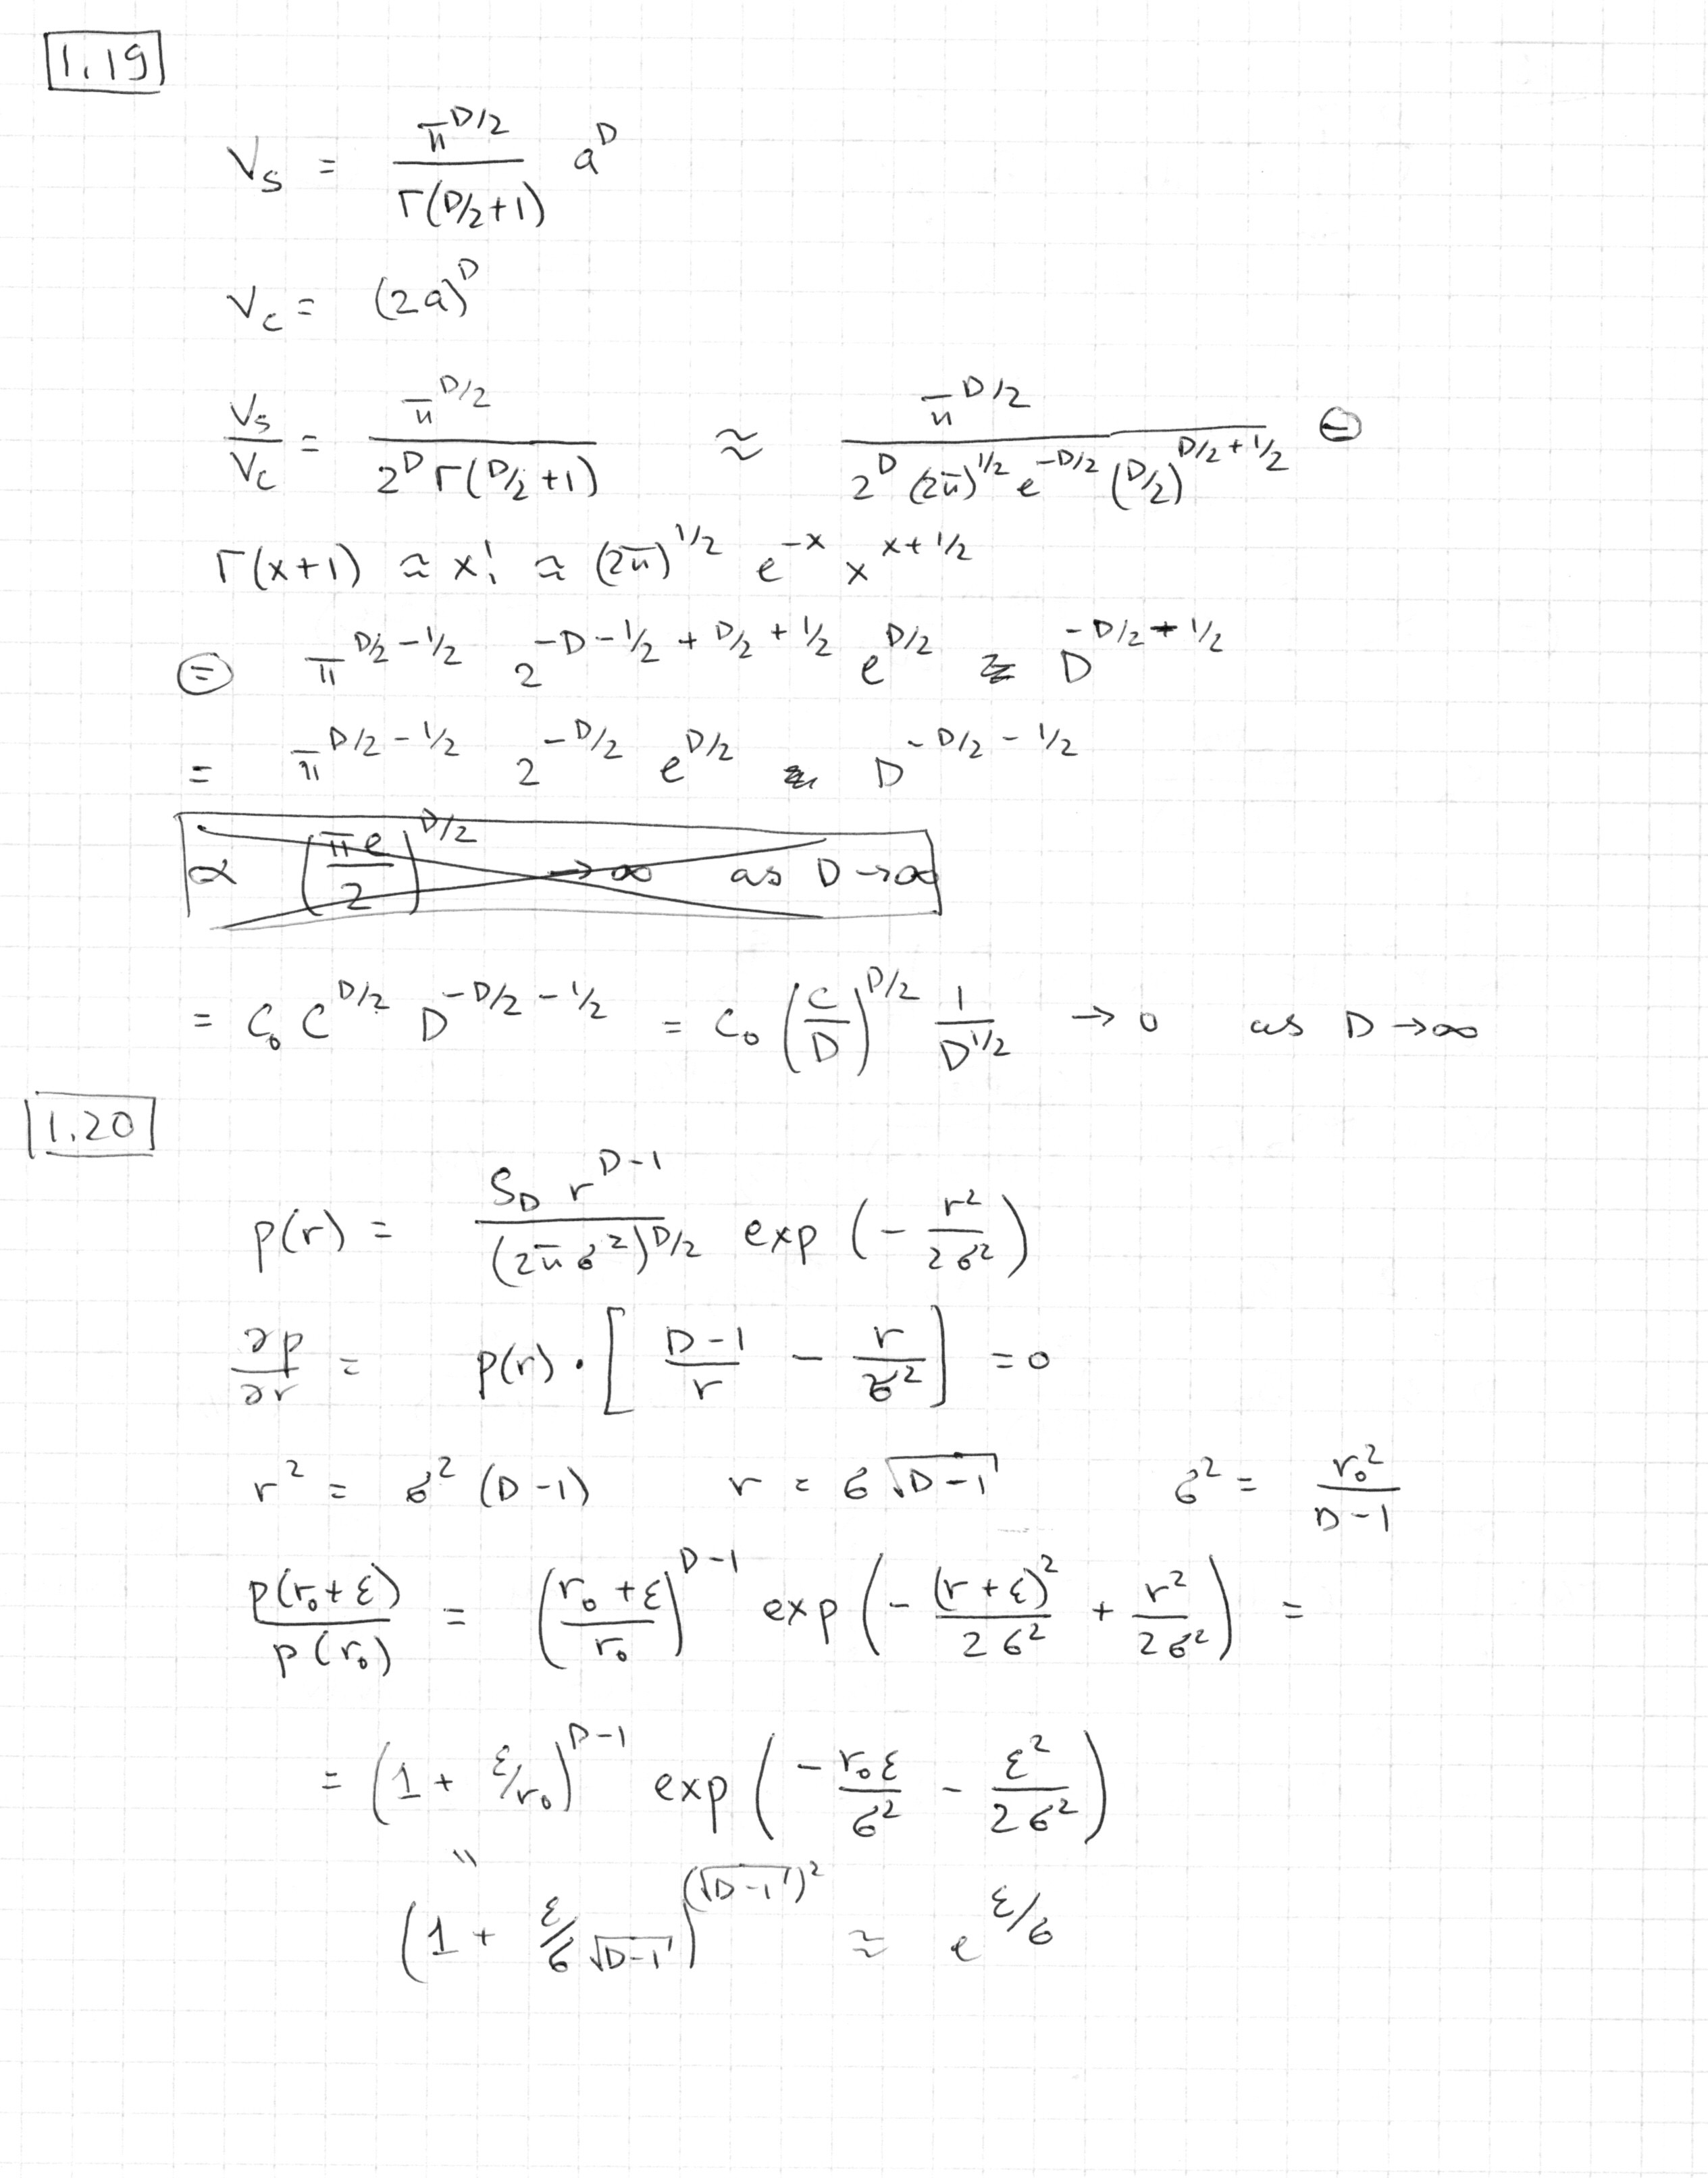 1.19
V_S = π^{D/2} / Γ(D/2+1) a^D
V_C = (2a)^D
V_S / V_C = π^{D/2} / (2^D Γ(D/2+1)) ≈ π^{D/2} / (2^D (2π)^{1/2} e^{-D/2} (D/2)^{D/2+1/2}) ⊜
Γ(x+1) ≈ x! ≈ (2π)^{1/2} e^{-x} x^{x+1/2}
⊜ π^{D/2-1/2} 2^{-D-1/2+D/2+1/2} e^{D/2} D^{-D/2+1/2}
= π^{D/2-1/2} 2^{-D/2} e^{D/2} D^{-D/2-1/2}
∝ (πe/2)^{D/2} → ∞ as D → ∞
= C_0 C^{D/2} D^{-D/2-1/2} = C_0 (C/D)^{D/2} 1/D^{1/2} → 0 as D → ∞
1.20
p(r) = S_D r^{D-1} / (2πσ^2)^{D/2} exp(- r^2 / 2σ^2)
∂p/∂r = p(r) · [ (D-1)/r - r/σ^2 ] = 0
r^2 = σ^2 (D-1) r = σ √(D-1) σ^2 = r_0^2 / (D-1)
p(r_0+ε) / p(r_0) = ((r_0+ε)/r_0)^{D-1} exp(- (r+ε)^2 / 2σ^2 + r^2 / 2σ^2) =
= (1 + ε/r_0)^{D-1} exp(- r_0 ε / σ^2 - ε^2 / 2σ^2)
"
(1 + ε/σ√(D-1))^{(√(D-1))^2} ≈ e^{ε/σ}